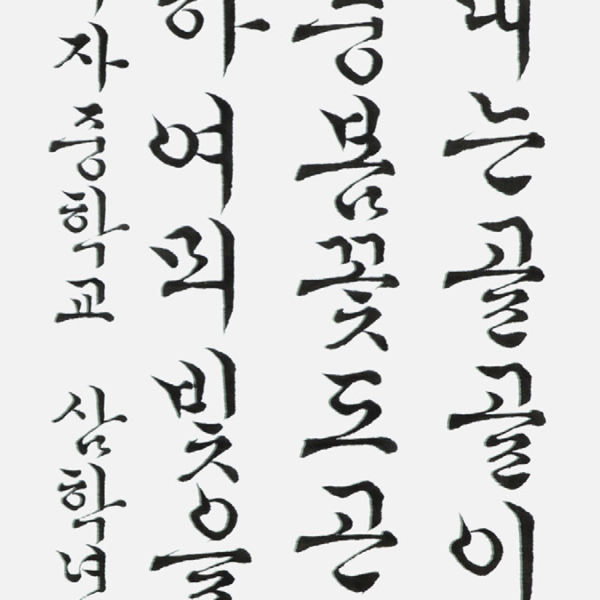 는골골이
봄꽃도곤
하여뫼빛을
자중학교 삼학년